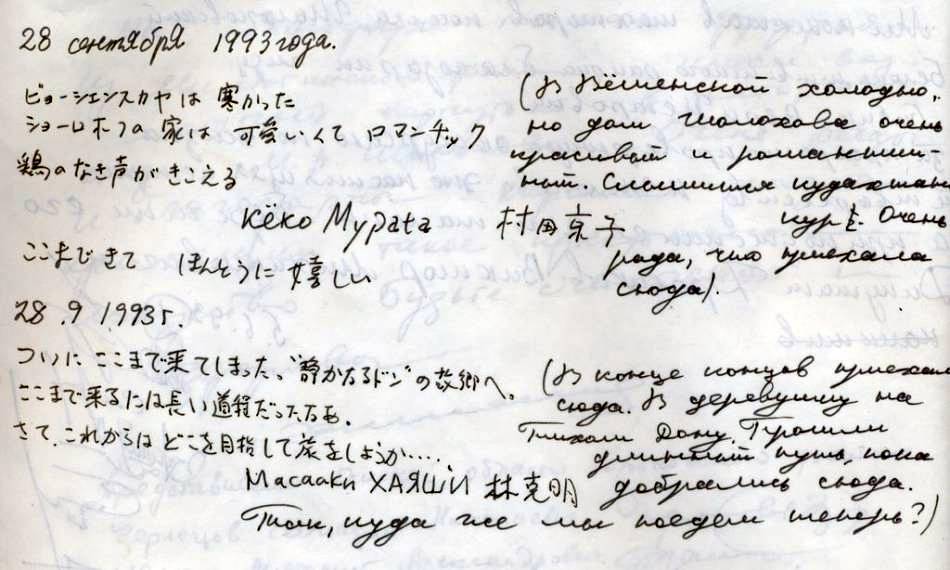 28 сентября 1993 года.
ビョーシェンスカヤは 寒かった
ショーロホフの 家は 可愛いくて ロマンチック
鶏のなき声が きこえる
Кёко Мурата 村田京子
ここまできて ほんとうに 嬉しい
(В Вёшенской холодно,
но дом Шолохова очень
красивый и романтич-
ный. Слышится кудахтан
кур. Очень
рада, что приехала
сюда).
28.9.1993г.
ついに ここまで来てしまった、"静かなるドン"の故郷へ。
ここまで来るには長い道程だったなも。
さて、これからは どこを目指して 旅をしようか.....
Масааки ХАЯШИ 林克明
(В конце концов приехал
сюда. В деревушку на
Тихом Дону. Прошли
длинный путь, пока
добрались сюда.
Так, куда же мы поедем теперь?)